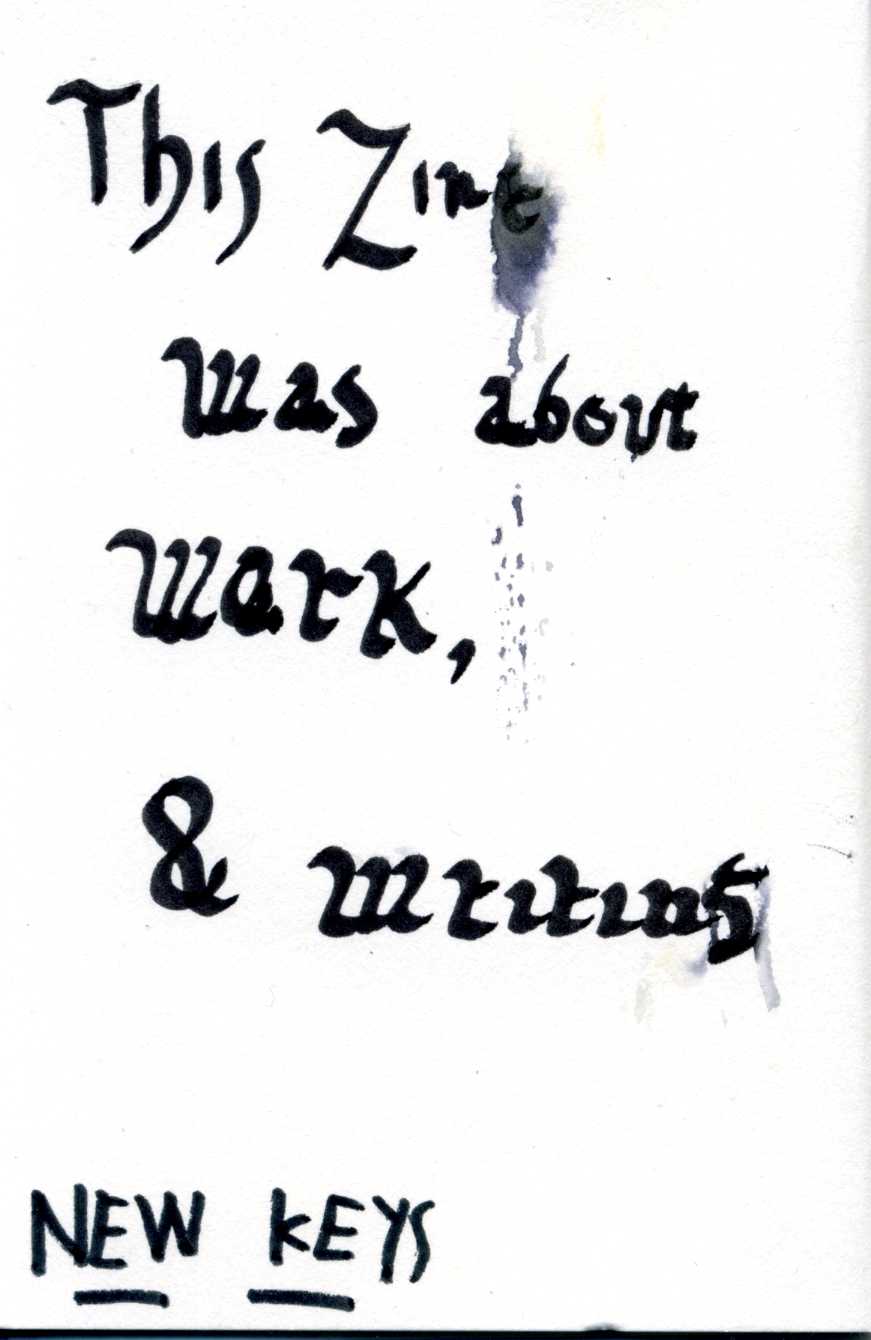 This Zine
was about
Work,
& writing
NEW KEYS